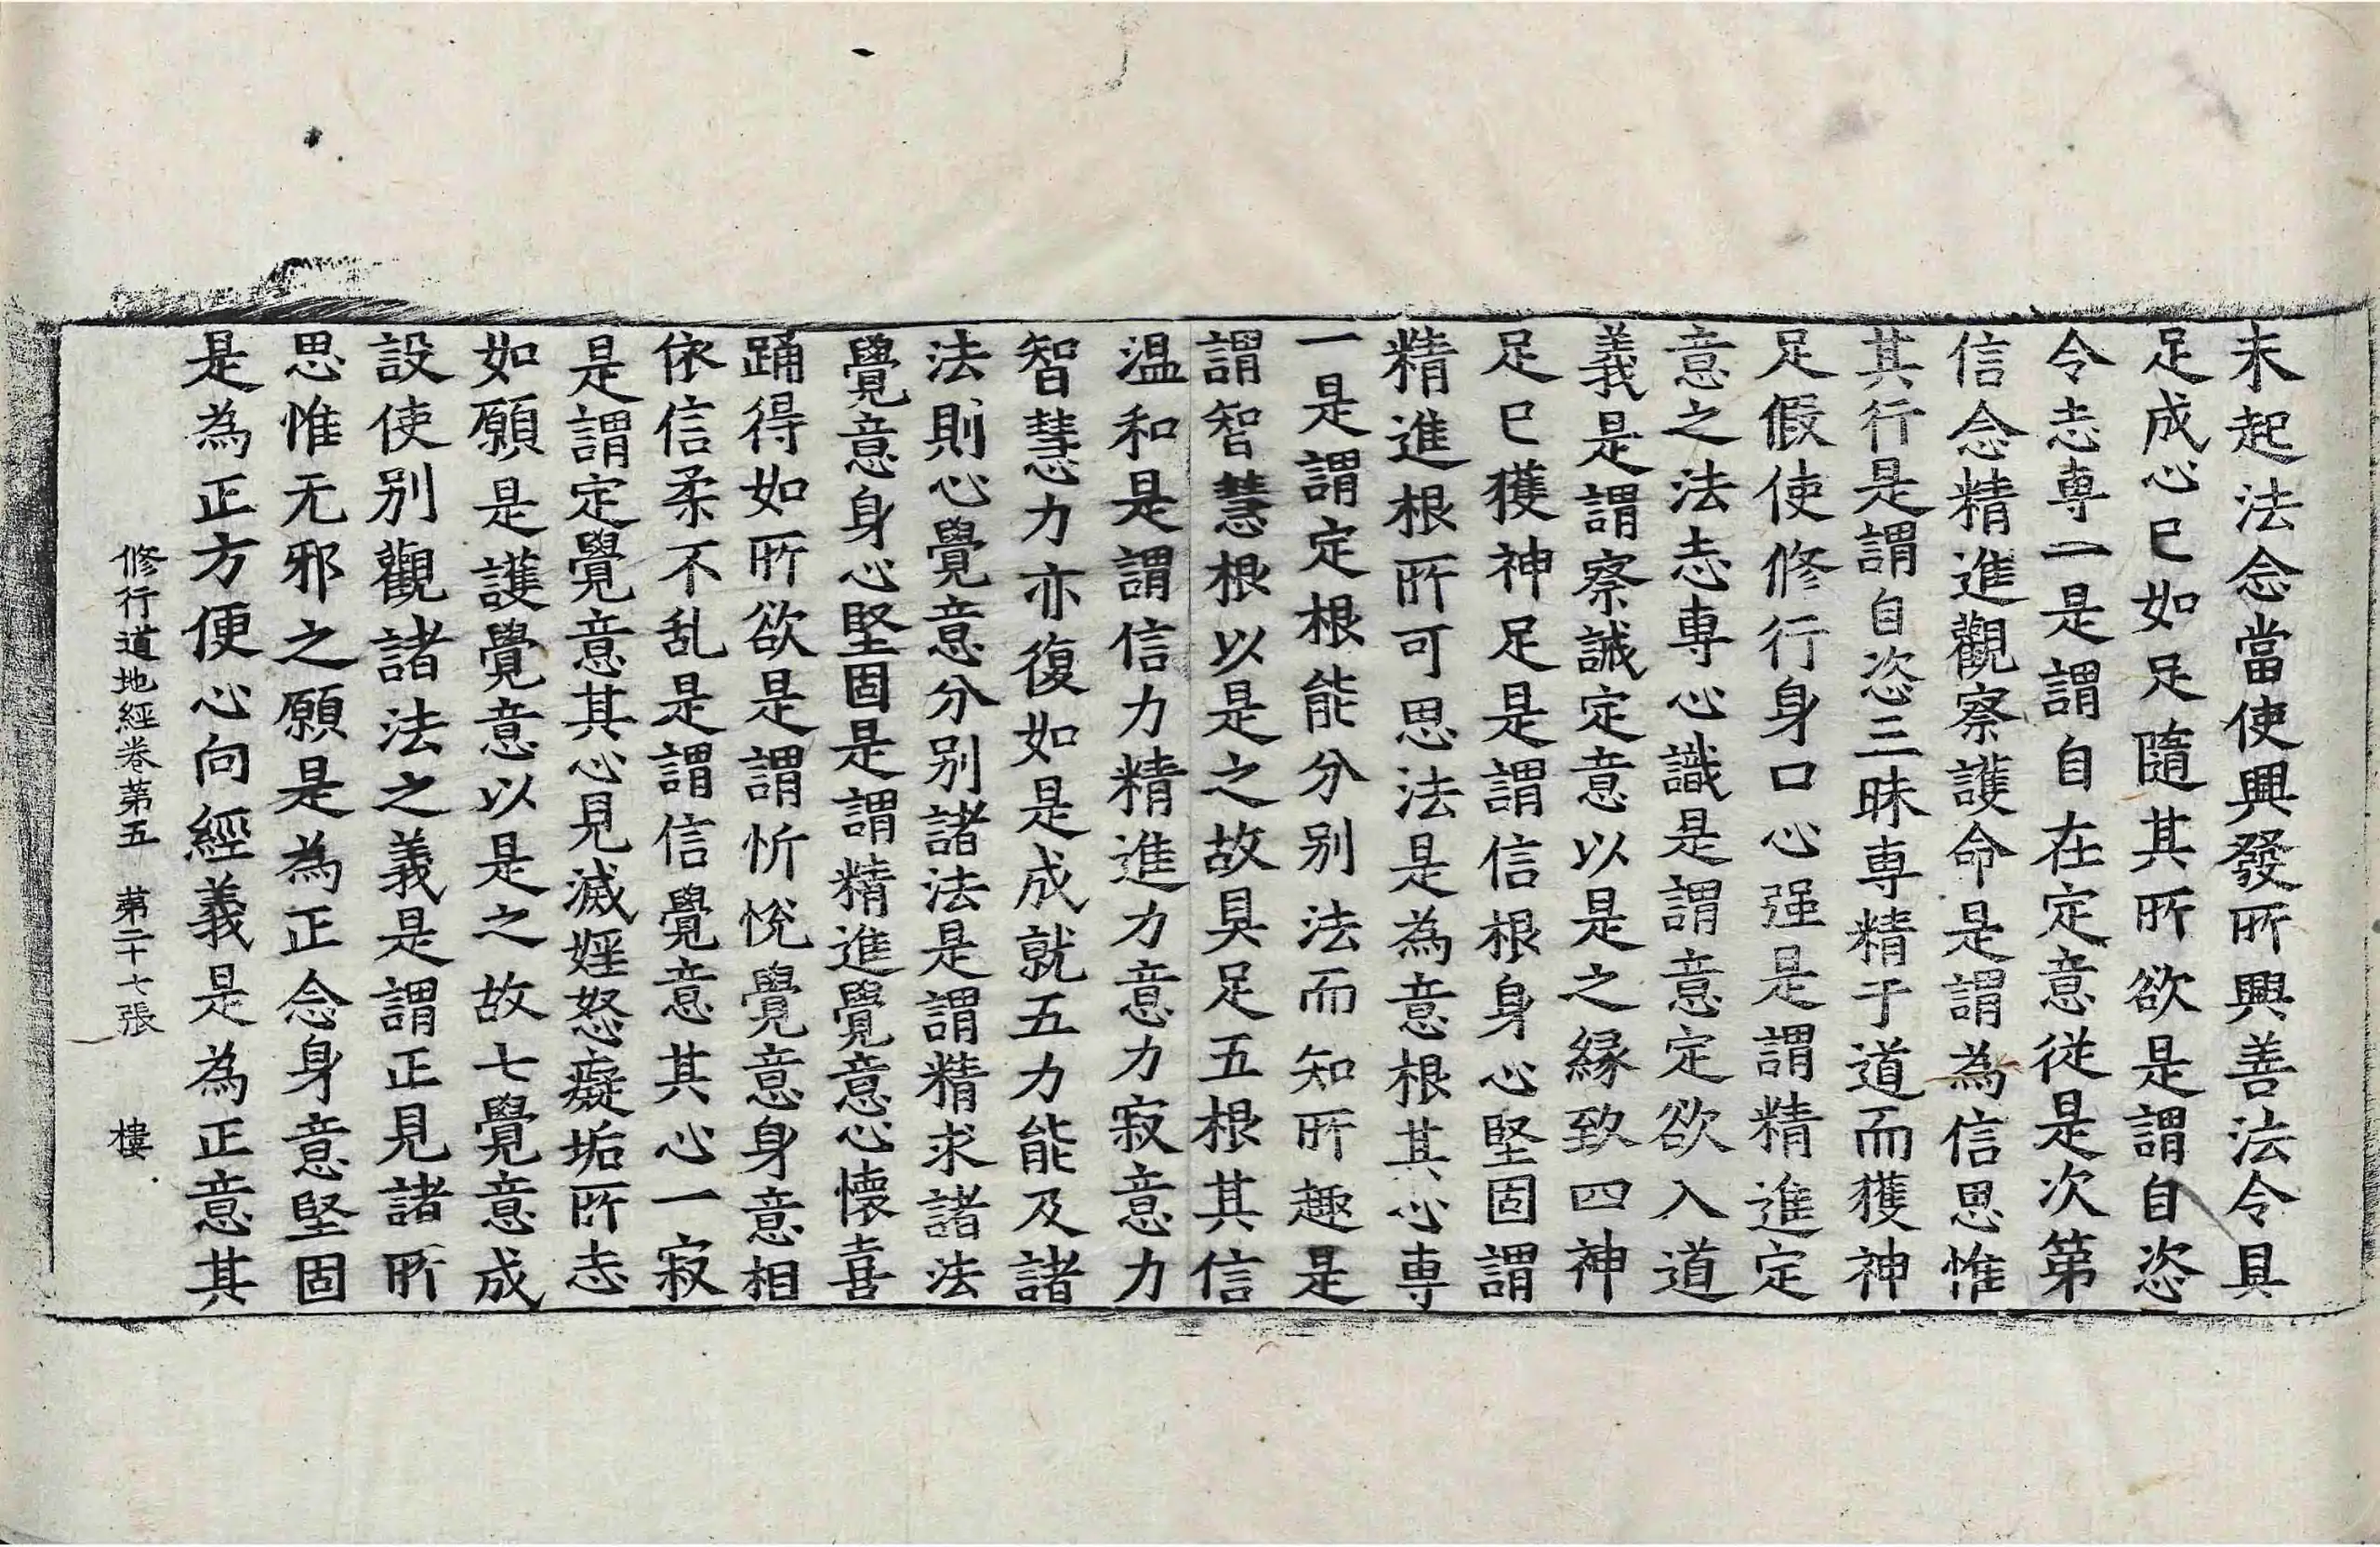 未起法念當使興發所興善法令具
足成心已如足隨其所欲是謂自恣
令志専一是謂自在定意從是次第
信念精進觀察護命是謂為信思惟
其行是謂自恣三昧専精于道而獲神
足假使修行身口心强是謂精進定
意之法志専心識是謂意定欲入道
義是謂察誡定意以是之緣致四神
足已獲神足是謂信根身心堅固謂
精進根所可思法是為意根其心専
一是謂定根能分别法而知所趣是
謂智慧根以是之故具足五根其信
温和是謂信力精進力意力寂意力
智慧力亦復如是成就五力能及諸
法則心覺意分别諸法是謂精求諸法
覺意身心堅固是謂精進覺意心懷喜
踊得如所欲是謂忻悅覺意身意相
依信柔不乱是謂信覺意其心一寂
是謂定覺意其心見滅婬怒癡垢所志
如願是護覺意以是之故七覺意成
設使别觀諸法之義是謂正見諸所
思惟无邪之願是為正念身意堅固
是為正方便心向經義是為正意其
修行道地經卷第五　第二十七張　樓